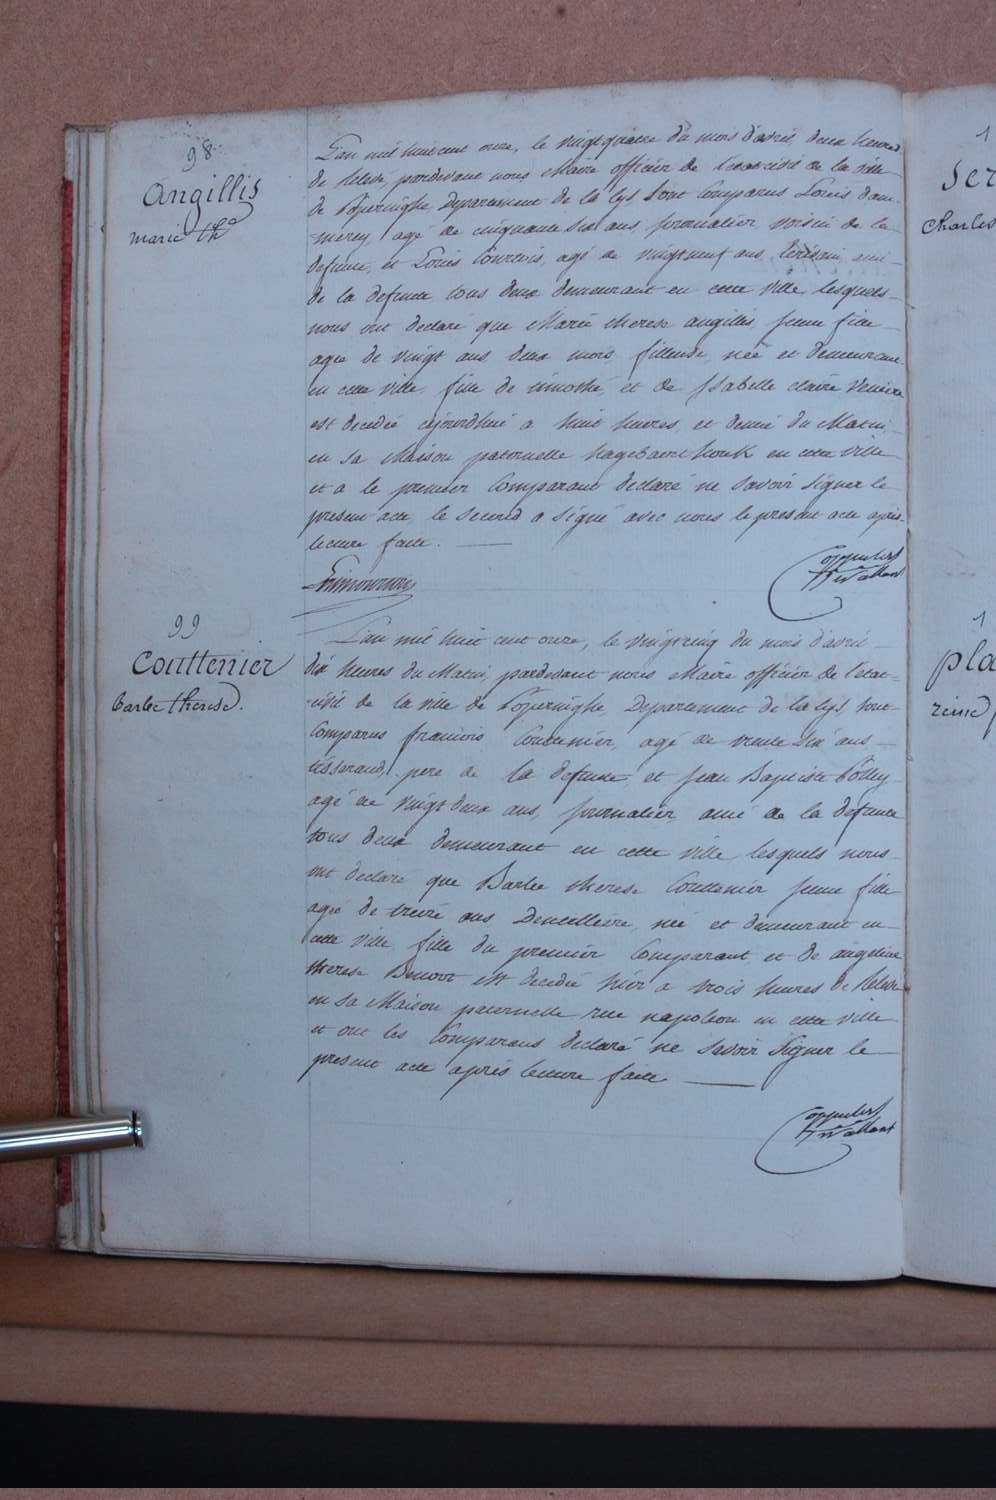 98
Angillis
marie th.e
L'an mil huit cent onze, le vingt quatre du mois d'avril, deux heures
de relevée, pardevant nous Maire officier de l'état civil de la ville
de Poperinghe, Departement de la Lys sont Comparus Louis
agé de cinquante six ans, journalier, voisin de la
defunte, et Louis Courtois, agé de vingt neuf ans, Ecrivain, ami
de la defunte tous deux demeurant en cette ville, lesquels
nous ont declaré que Marie therese angillis, jeune fille
agée de vingt ans deux mois, fileuse, née et demeurant
en cette ville, fille de timothé, et de Isabelle claire
est decedée cejourdhui a huit heures, et demie du Matin,
en sa Maison paternelle en cette ville
et a le premier Comparant declaré ne savoir signer le
present acte, le second a signé avec nous le present acte après
lecture faite.
99
Couttenier
barbe therese.
L'an mil huit cent onze, le vingt cinq du mois d'avril
dix heures du Matin, pardevant nous Maire officier de l'état
civil de la ville de Poperinghe, Departement de la Lys, sont
Comparus francois Couttenier, agé de trente six ans
tisserand, pere de la defunte, et Jean Baptiste
agé de vingt deux ans, journalier, ami de la defunte
tous deux demeurant en cette ville, lesquels nous
ont declaré que Barbe therese Couttenier jeune fille
agée de treize ans Dentelliere, née et demeurant en
cette ville, fille du premier Comparant, et de angeline
therese Benoot est decedée hier a trois heures de relevée
en sa Maison paternelle rue napoleon en cette ville
et ont les Comparans declaré ne savoir signer le
present acte après lecture faite
charles